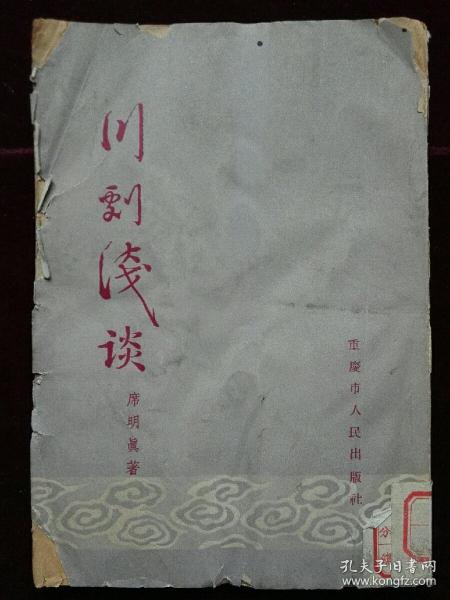 川剧淺谈
席明眞著
重慶市人民出版社
分一類
孔夫子旧书网
www.kongfz.com